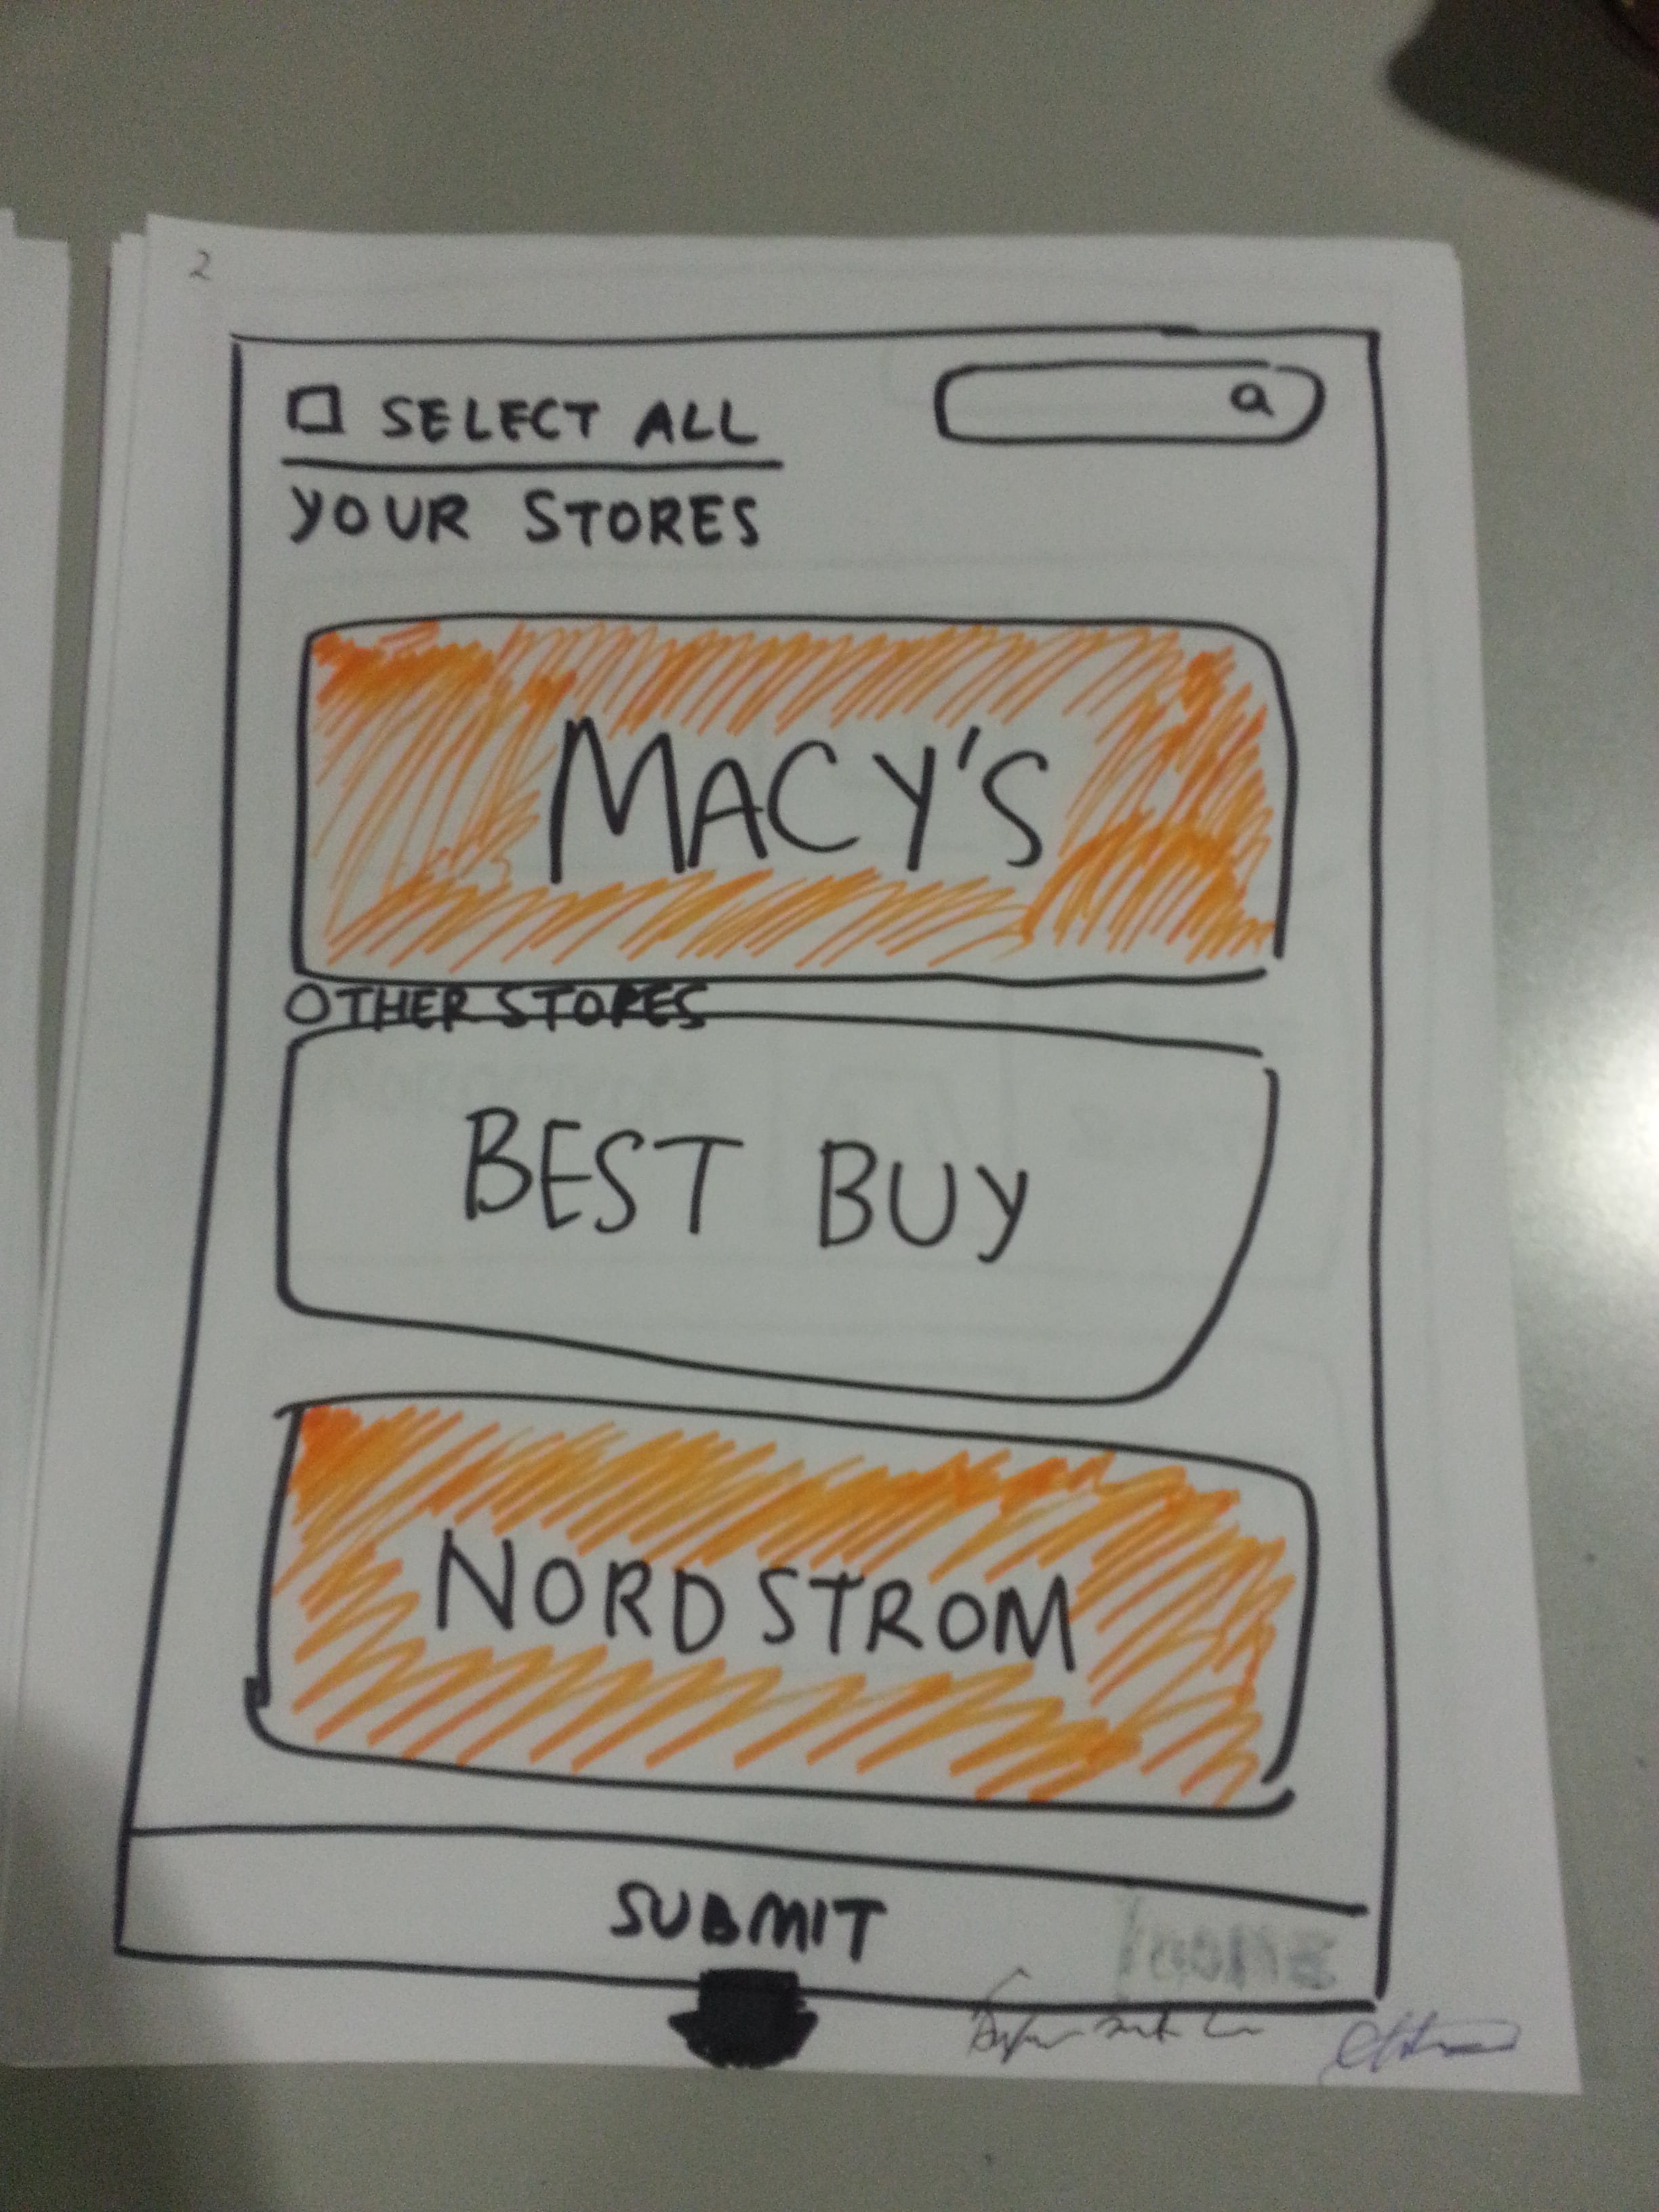 2
SELECT ALL
YOUR STORES
MACY'S
OTHER STORES
BEST BUY
NORDSTROM
SUBMIT